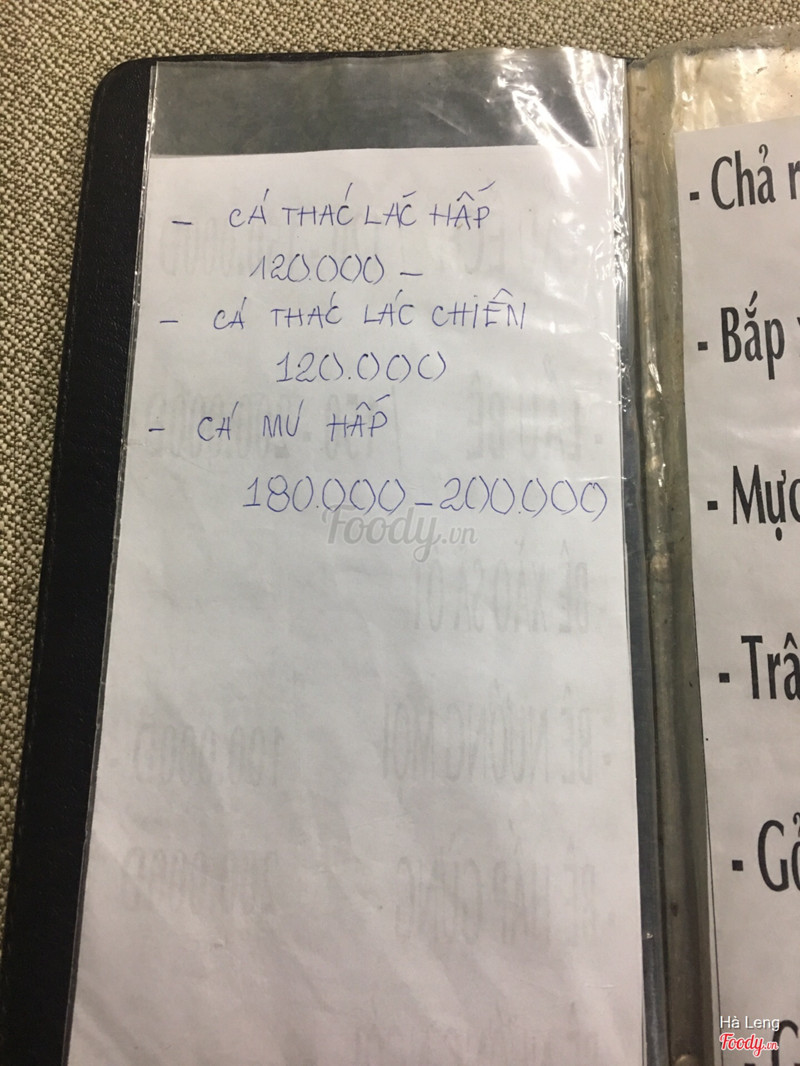 - CÁ THÁC LÁC HẤP
120.000 -
- CÁ THÁC LÁC CHIÊN
120.000
- CÁ MÚ HẤP
180.000 - 200.000
Foody.vn
- Chả
- Bắp
- Mực
- Trâ
- Gỏ
Hà Leng
Foody.vn